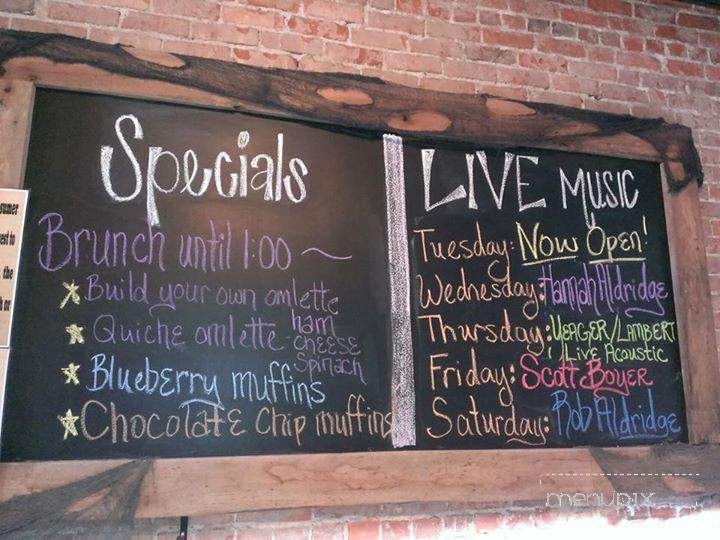 Specials
Brunch until 1:00 ~
Build your own omlette
Quiche omlette - ham
cheese
Spinach
Blueberry muffins
Chocolate chip muffins
LIVE MUSIC
Tuesday: Now Open!
Wednesday: Hannah Aldridge
Thursday: YEAGER/LAMBERT
Live Acoustic
Friday: Scott Boyer
Saturday: Rob Aldridge
sumer
est to
the
h or
menupix